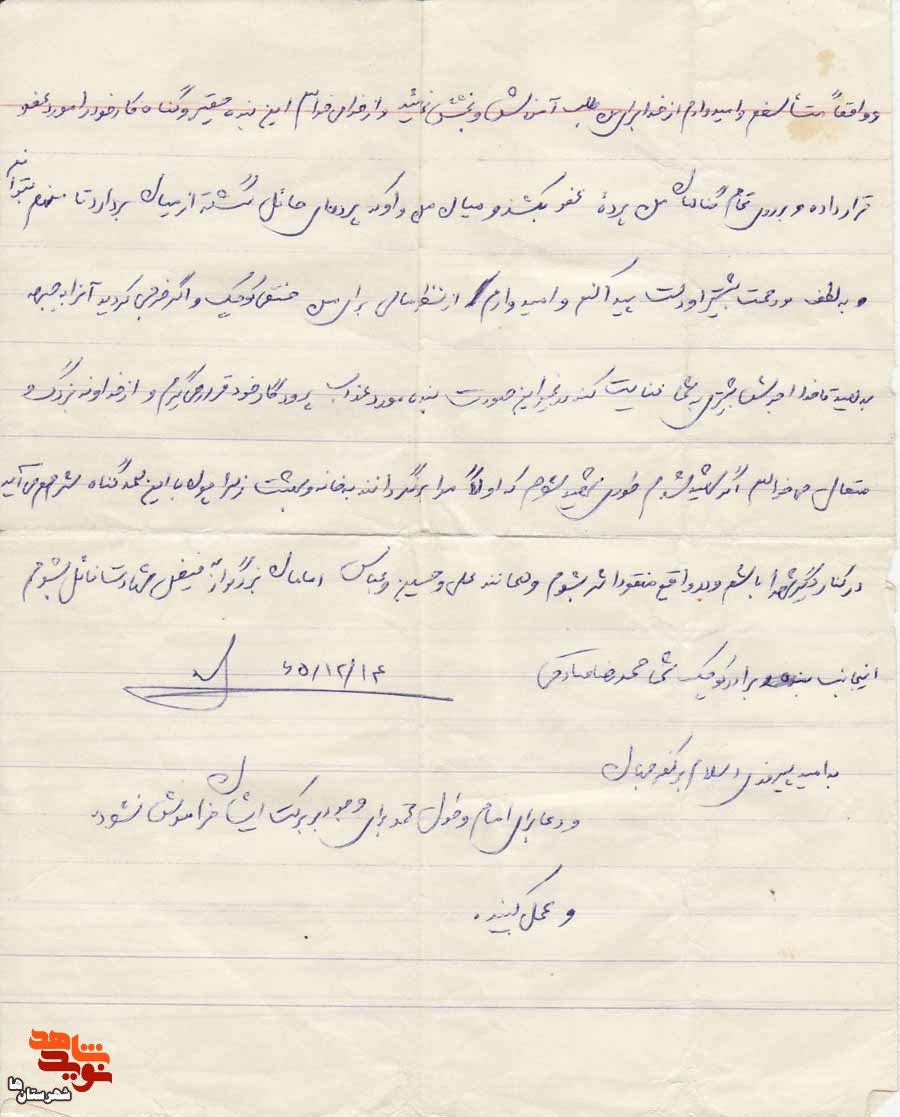 و واقعاً متأسفم و امیدوارم از خدا برای من طلب آمرزش و بخشش نمائید و از خدا می‌خواهم این بنده حقیر و گناه کار خود را مورد عفو
قرار داده و بر روی تمام گناهان من پردهٔ عفو بکشد و میان من و او که پرده‌ای حائل گشته از میان بردارد تا منهم بتوانم
و به لطف و رحمت بیشتر او دست پیدا کنم و امیدوارم از نظر مالی برای من کوچک و اگر خرجی کردید آنرا به جبهه
بدهید تا خدا اجرش بیشتری به شما عنایت کند در غیر این صورت بنده مورد عذاب پروردگار خود قرار می‌گیرم و از خداوند بزرگ و
متعال می‌خواهم اگر شهید شدم طوری شهید شوم که اولاً مرا برنگردانند به خانه و بهشت زهرا چون با این همه گناه شرمم می‌آید
در کنار دیگر شهدا باشم و در واقع مفقودالاثر بشوم و همانند علی و حسین و عباس امامان بزرگوار به فیض شهادت نائل بشوم
اینجانب بنده برادر کوچک شما محمدرضا صادقی ۶۵/۱۲/۱۴
به امید پیروزی اسلام بر کفر جهان
و دعا برای امام و طول عمر برای وجود پر برکت ایشان فراموش نشود.
و عمل کنید.
نوید شاهد
شهرستان‌ها